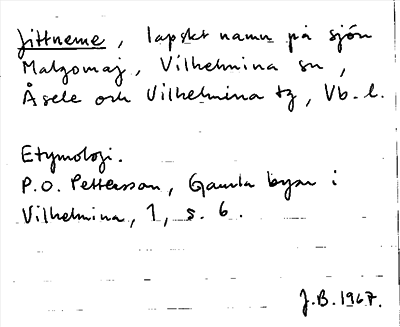 Jittneme, lapskt namn på sjön
Malgomaj, Vilhelmina sn,
Åsele och Vilhelmina tg, Vb. l.
Etymologi.
P.O. Pettersson, Gamla byar i
Vilhelmina, 1, s. 6.
J.B. 1967.